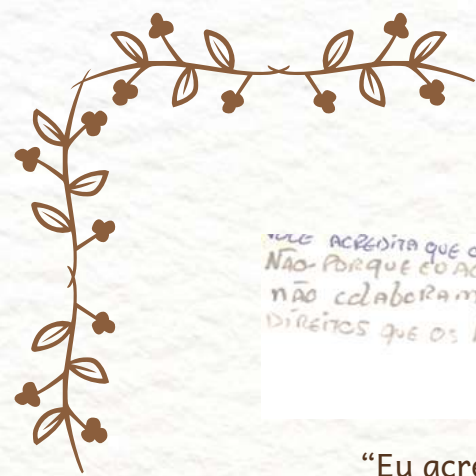 VOCÊ ACREDITA QUE
NÃO PORQUE EU
não colaboram
DIREITOS QUE OS
“Eu acre